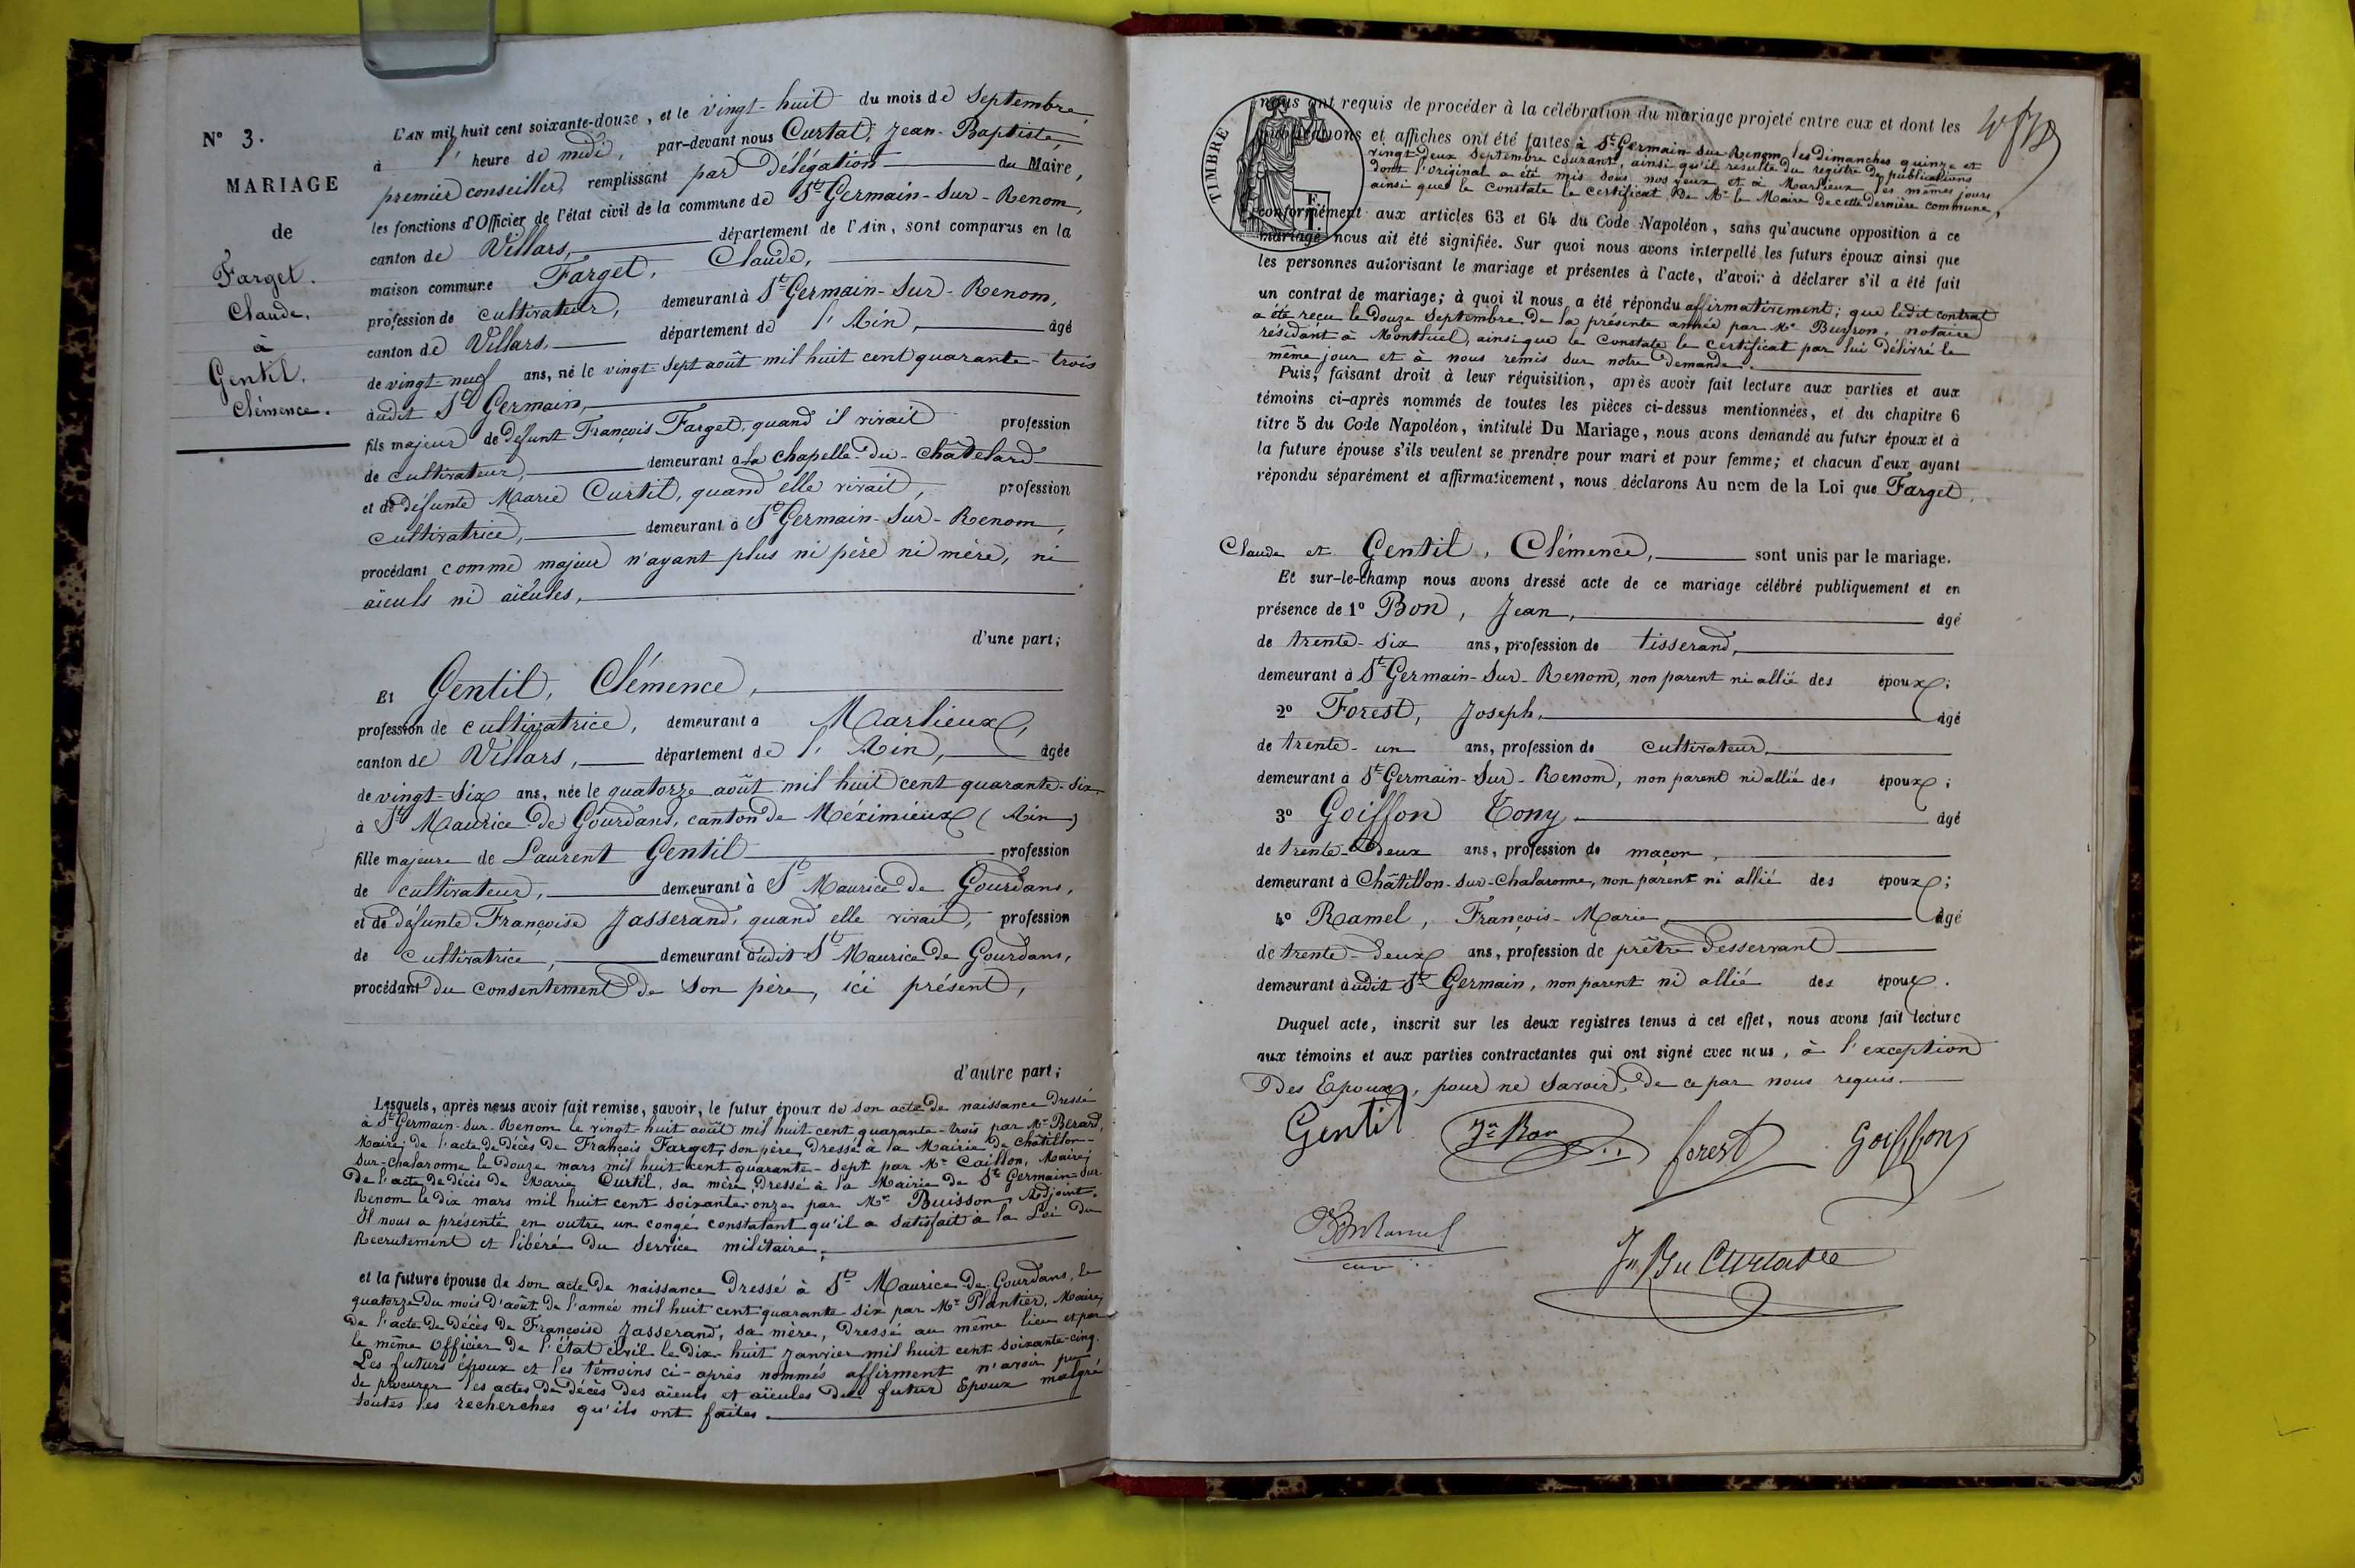 N° 3.
MARIAGE
de
Farget.
Claude.
à
Gentil.
Clémence.
L'AN mil huit cent soixante-douze, et le vingt-huit du mois de Septembre,
à l'heure de midi, par-devant nous Curtat, Jean-Baptiste,
premier conseiller, remplissant par délégation du Maire,
les fonctions d'Officier de l'état civil de la commune de St Germain-Sur-Renom,
canton de Villars, département de l'Ain, sont comparus en la
maison commune Farget, Claude,
profession de cultivateur, demeurant à St Germain-Sur-Renom,
canton de Villars, département de l'Ain, âgé
de vingt-neuf ans, né le vingt-sept août mil huit cent quarante-trois
audit St Germain,
fils majeur de défunt François Farget, quand il vivait profession
de cultivateur, demeurant à la chapelle-du-Châtelard
et de défunte Marie Curtil, quand elle vivait, profession
cultivatrice, demeurant à St Germain-Sur-Renom,
procédant comme majeur n'ayant plus ni père ni mère, ni
aïeuls ni aïeules,
d'une part;
Et Gentil, Clémence,
profession de cultivatrice, demeurant à Marlieux,
canton de Villars, département de l'Ain, âgée
de vingt-six ans, née le quatorze août mil huit cent quarante-six
à St Maurice de Gourdans, canton de Méximieux (Ain)
fille majeure de Laurent Gentil profession
de cultivateur, demeurant à St Maurice de Gourdans,
et de défunte Françoise Jasserand, quand elle vivait, profession
de cultivatrice, demeurant audit St Maurice de Gourdans,
procédant du consentement de son père, ici présent,
d'autre part;
Lesquels, après nous avoir fait remise, savoir, le futur époux de son acte de naissance dressé
à St Germain-Sur-Renom le vingt-huit août mil huit cent quarante-trois par Mr Bérard,
Maire; de l'acte de décès de François Farget, son père, dressé à la Mairie de Châtillon-
sur-Chalaronne le douze mars mil huit cent quarante-sept par Mr Caillon, Maire;
De l'acte de décès de Marie Curtil, sa mère, dressé à la Mairie de St Germain-Sur-
Renom le dix mars mil huit cent soixante-onze par Mr Buisson, Adjoint.
Il nous a présenté en outre un congé constatant qu'il a satisfait à la Loi du
Recrutement et libéré du service militaire;
et la future épouse de son acte de naissance dressé à St Maurice de Gourdans, le
quatorze du mois d'août de l'année mil huit cent quarante six par Mr Plantier, Maire;
De l'acte de décès de Françoise Jasserand, sa mère, dressé au même lieu et par
le même Officier de l'état civil le dix-huit janvier mil huit cent soixante-cinq.
Les futurs époux et les témoins ci-après nommés affirment n'avoir pu
se procurer les actes de décès des aïeuls et aïeules du futur Epoux malgré
toutes les recherches qu'ils ont faites.
TIMBRE
nous ont requis de procéder à la célébration du mariage projeté entre eux et dont les
publications et affiches ont été faites à St Germain-Sur-Renom, les Dimanches quinze et
vingt-deux Septembre courant, ainsi qu'il résulte du registre de publications
dont l'original a été mis sous nos yeux et à Marlieux les mêmes jours
ainsi que le constate le certificat de Mr le Maire de cette dernière commune,
conformément aux articles 63 et 64 du Code Napoléon, sans qu'aucune opposition à ce
mariage nous ait été signifiée. Sur quoi nous avons interpellé les futurs époux ainsi que
les personnes autorisant le mariage et présentes à l'acte, d'avoir à déclarer s'il a été fait
un contrat de mariage; à quoi il nous a été répondu affirmativement; que ledit contrat
a été reçu le douze Septembre de la présente année par Me Buyron, notaire
résidant à Montluel, ainsi que le constate le certificat par lui délivré le
même jour et à nous remis sur notre demande.
Puis, faisant droit à leur réquisition, après avoir fait lecture aux parties et aux
témoins ci-après nommés de toutes les pièces ci-dessus mentionnées, et du chapitre 6
titre 5 du Code Napoléon, intitulé Du Mariage, nous avons demandé au futur époux et à
la future épouse s'ils veulent se prendre pour mari et pour femme; et chacun d'eux ayant
répondu séparément et affirmativement, nous déclarons Au nom de la Loi que Farget,
Claude et Gentil, Clémence, sont unis par le mariage.
Et sur-le-champ nous avons dressé acte de ce mariage célébré publiquement et en
présence de 1° Bon, Jean, âgé
de trente-six ans, profession de tisserand,
demeurant à St Germain-Sur-Renom, non parent ni allié des époux;
2° Forest, Joseph, âgé
de trente-un ans, profession de cultivateur,
demeurant à St Germain-Sur-Renom, non parent ni allié des époux;
3° Goiffon Tony âgé
de trente-deux ans, profession de maçon,
demeurant à Châtillon-sur-Chalaronne, non parent ni allié des époux;
4° Ramel, François-Marie, âgé
de trente-deux ans, profession de prêtre desservant
demeurant audit St Germain, non parent ni allié des époux.
Duquel acte, inscrit sur les deux registres tenus à cet effet, nous avons fait lecture
aux témoins et aux parties contractantes qui ont signé avec nous, à l'exception
Des Epoux, pour ne savoir, de ce par nous requis.
Gentil Jn Bon forest Goiffon
Ramel
curé
Jn Bte Curtat